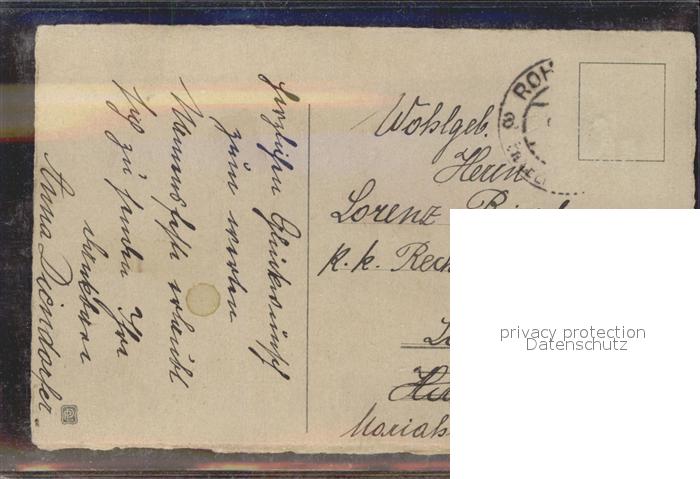 Herzlichen Glückwunsch
zum werten
Namensfeste erlaubt
sich zu senden Ihre
dankbare
Anna Diendorfer.
Wohlgeb.
Herrn
Lorenz
k. k.
Mariah
ROH
privacy protection
Datenschutz